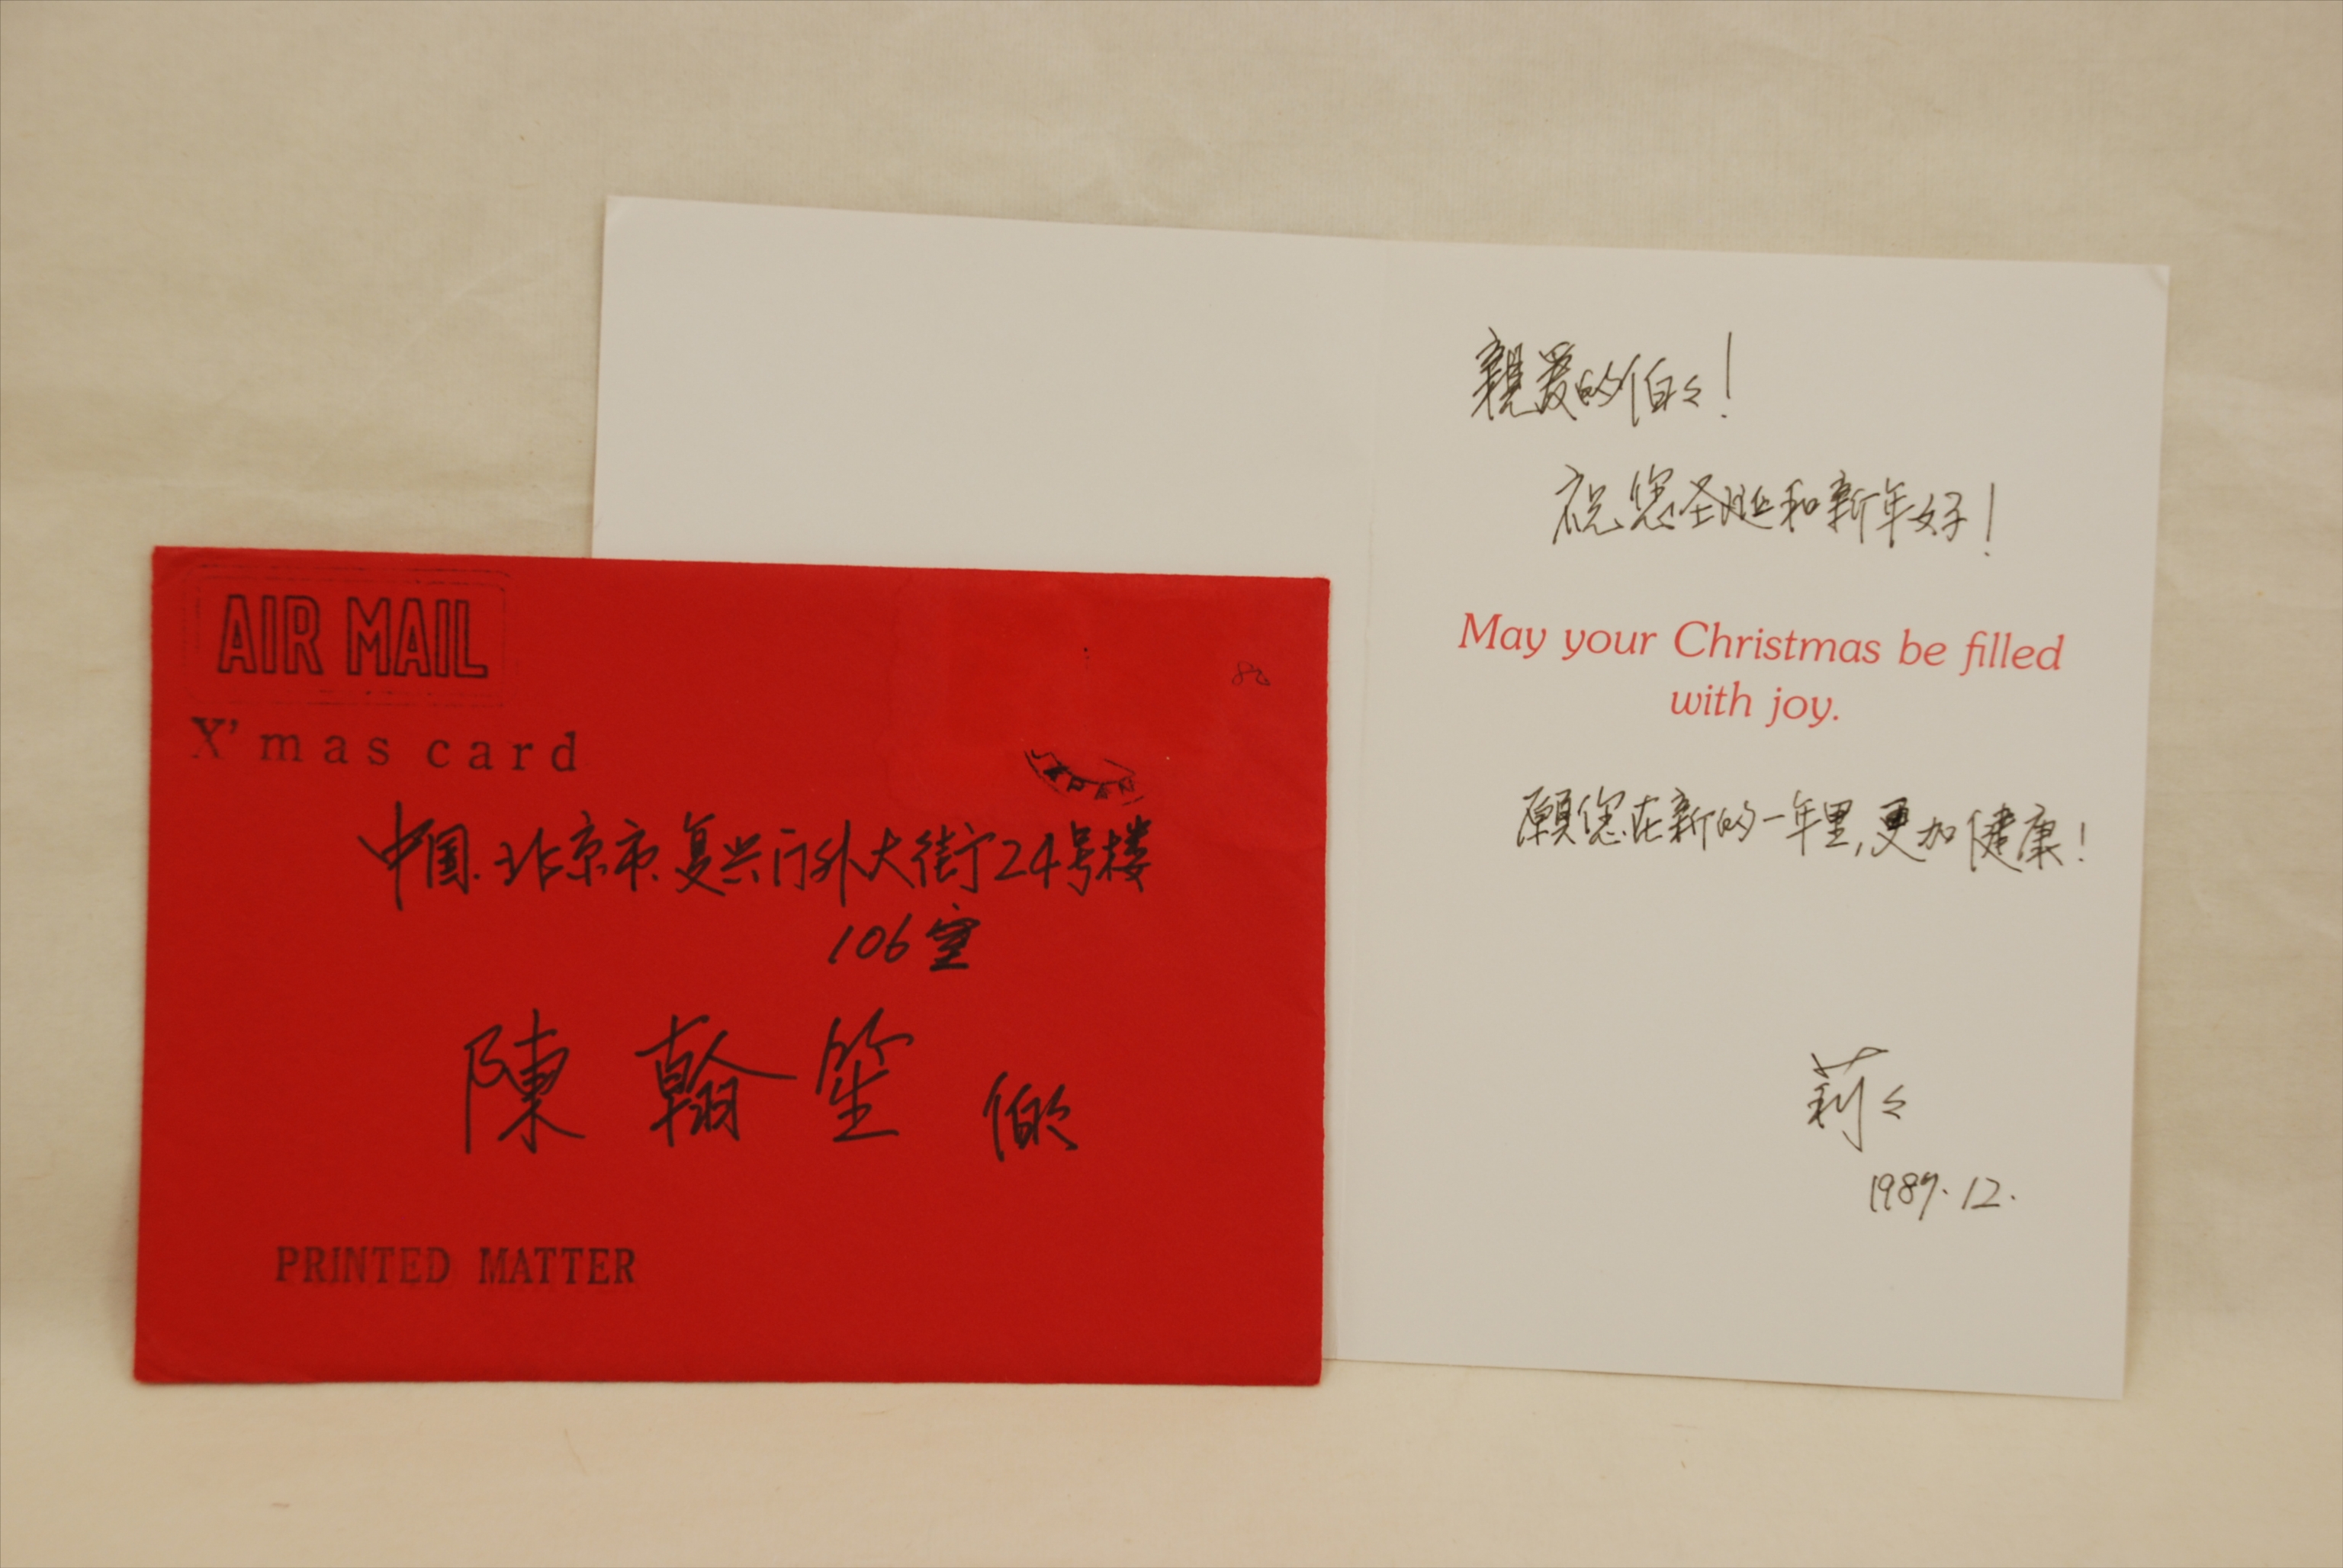 AIR MAIL
X'mas card
中国.北京市.复兴门外大街24号楼
106室
陳翰笙 伯伯
PRINTED MATTER
親爱的伯々!
祝您圣誕和新年好!
May your Christmas be filled
with joy.
願您在新的一年里,更加健康!
莉々
1987.12.